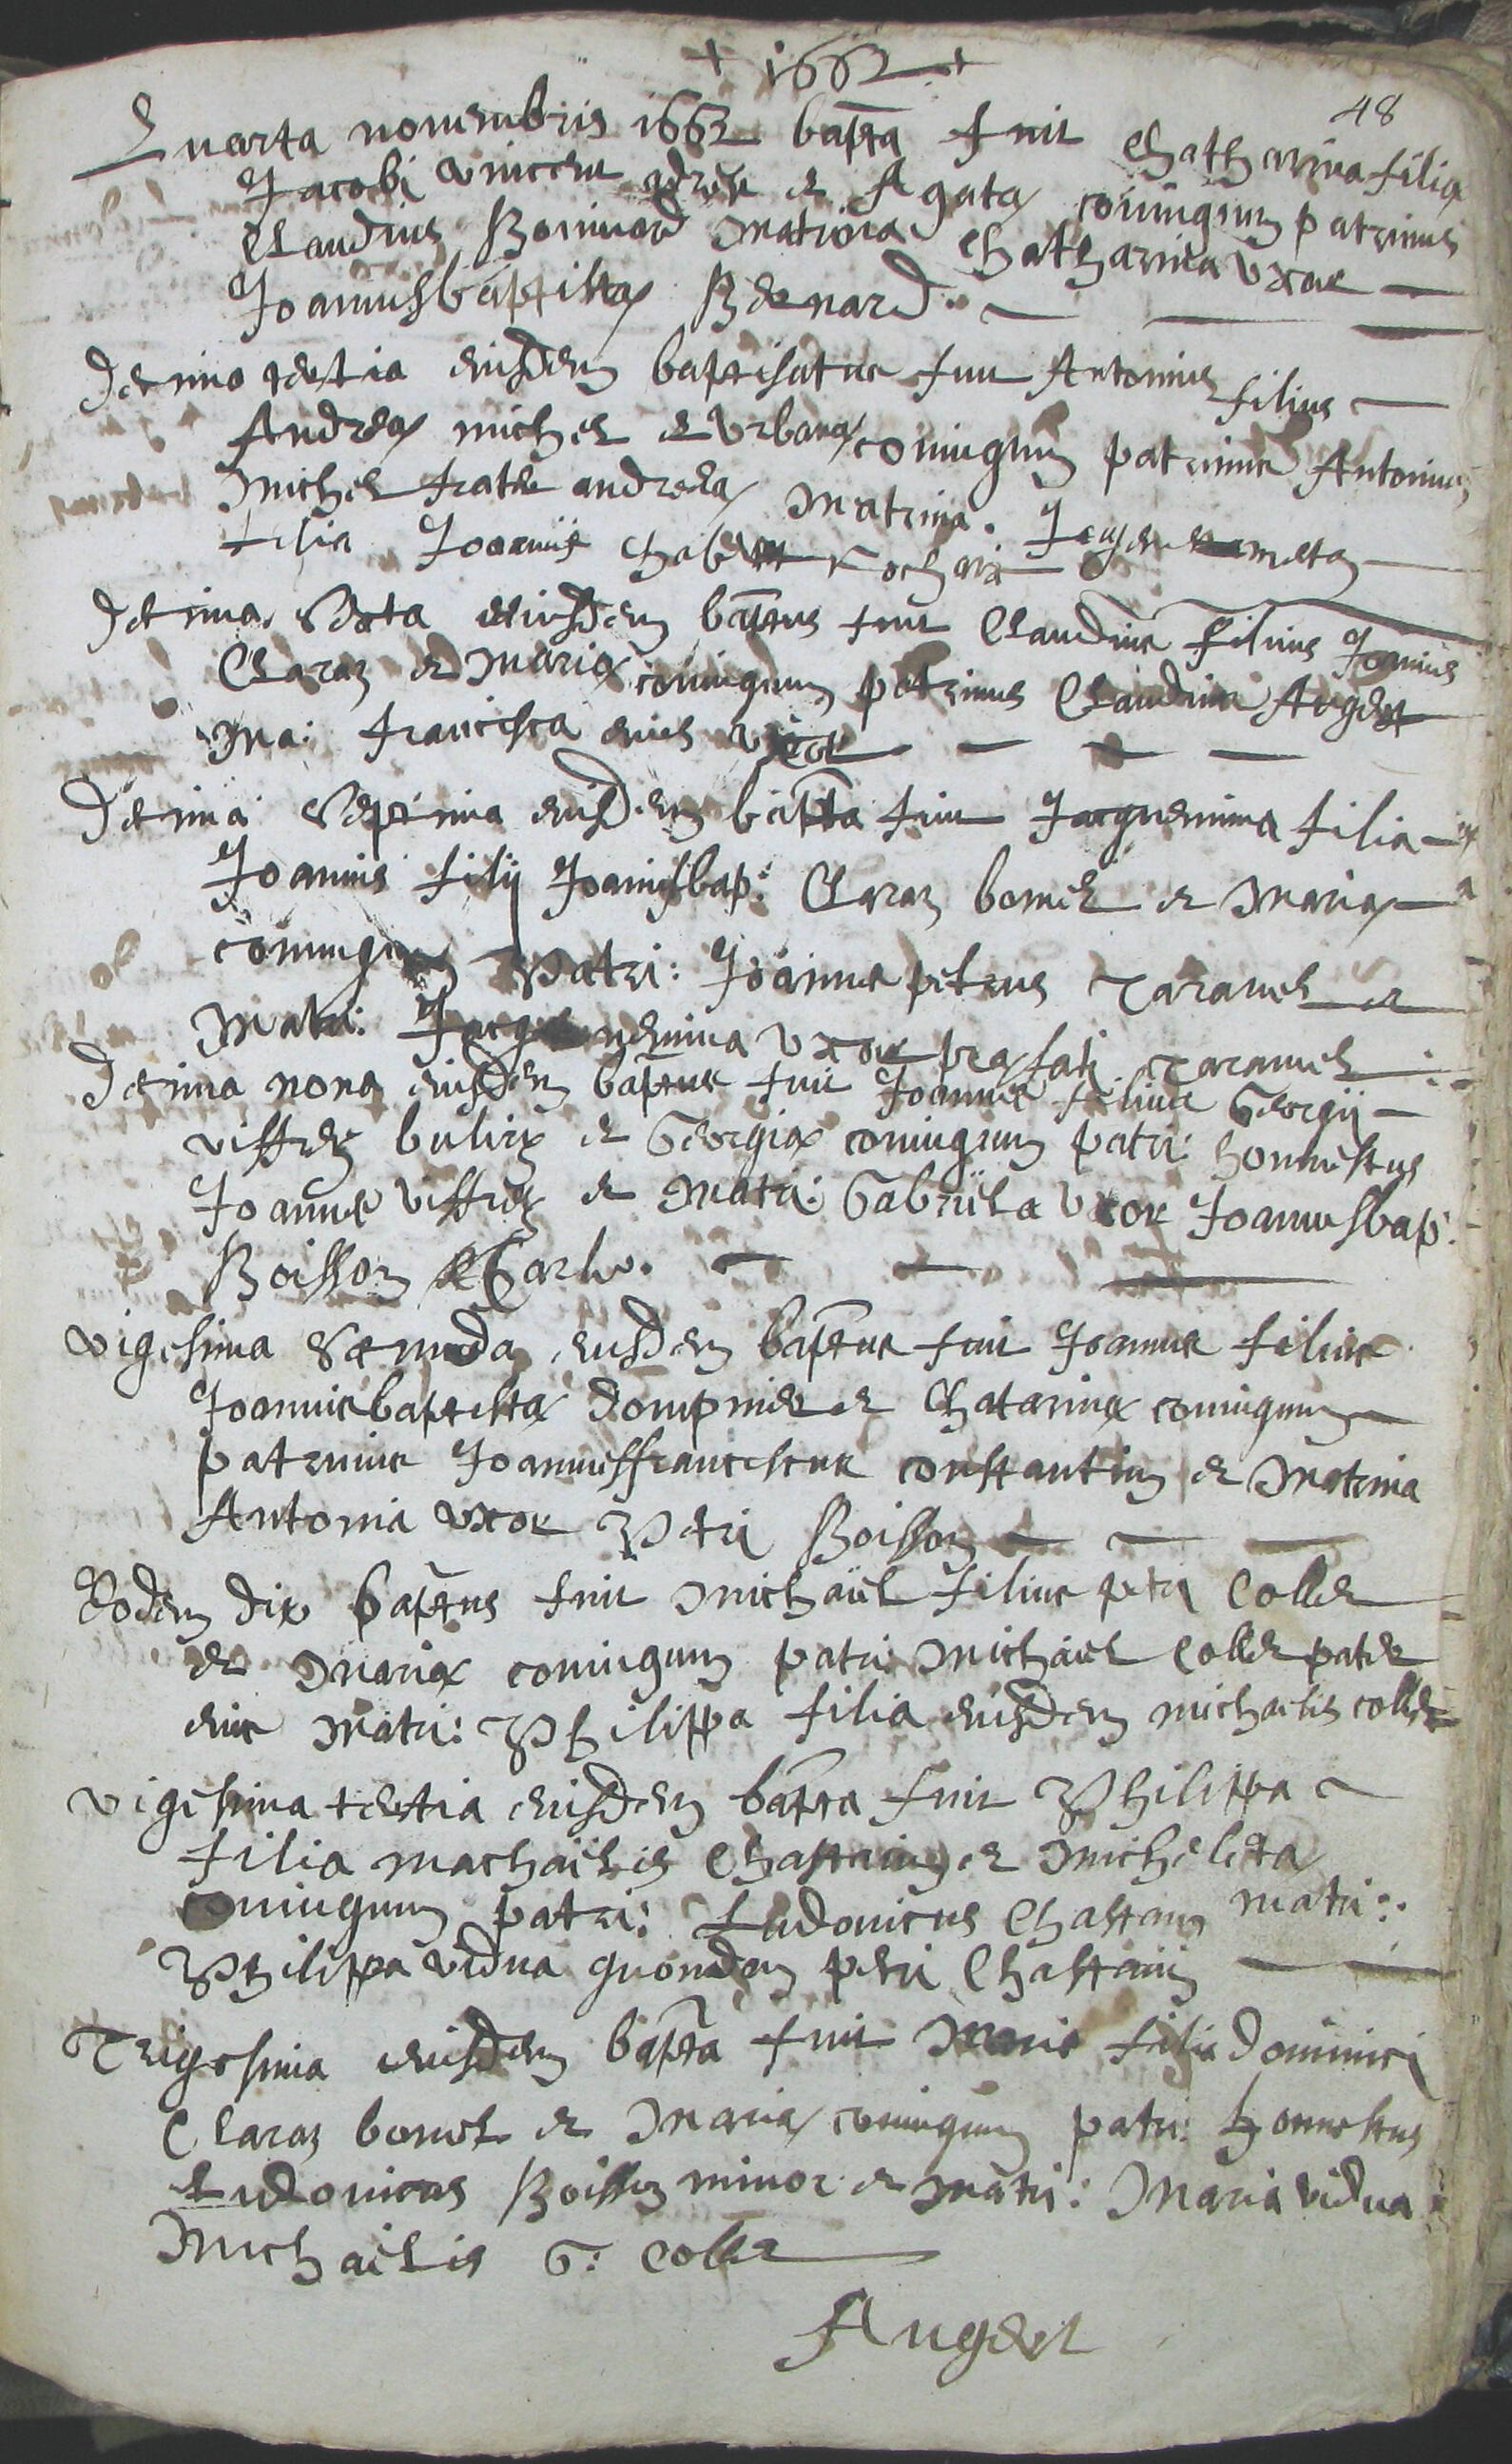 + 1662 +
48
Quarta novembris 1662 bapta fuit Chatharina filia
Jacobi Vincent et Agatæ coniugum patrinus
Claudius Bonivard matrina Chatharina uxor
Joannisbaptistæ Bernard.
Decima tertia eiusdem baptisatus fuit Antonius filius
Andreæ michel et Urbanæ coniugum patrinus Antonius
Michel frater andreæ matrina.
filia Joannis
Decima sexta eiusdem baptus fuit Claudius filius Joannis
Claraz et Mariæ coniugum patrinus Claudius Auget
ma: francisca eius uxor
Decima septima eiusdem bapta fuit Jaquemina filia
Joannis filij Joannisbap: Claraz bonel et Mariæ
coniugum Patri: Joannes petrus Taravel et
Matri: Jacquemina uxor præfati Taravel
Decima nona eiusdem baptus fuit Joannes filius Georgij
Viffrey et Georgiæ coniugum patri: honnestus
Joannes Viffrey et Matri: Gabriela uxor Joannisbap:
Boisson Carlo.
Vigesima secunda eiusdem baptus fuit Joannes filius
Joannisbaptistæ dompnier et Chatarinæ coniugum
patrinus Joannesfranciscus constantin et Matrina
Antonia uxor Petri Boisson
Eodem die baptus fuit Michaël filius petri Collet
et Mariæ coniugum patri: Michaël Collet pater
eius Matri: Philippa filia eiusdem michaelis collet
Vigesima tertia eiusdem bapta fuit Philippa
filia machaëlis Chastaing et Micheletæ
coniugum patri: Ludovicus Chastaing matri:
Philippa vidua quondam petri Chastaing
Trigesima eiusdem bapta fuit Maria filia Dominici
Claraz bonel et Mariæ coniugum patri: honnestus
Ludovicus Boisson minor et matri: Maria vidua
Michaëlis G: Collet
Auget